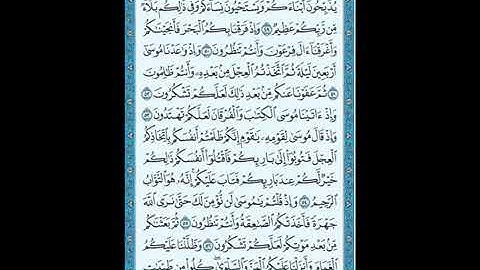 يُذَبِّحُونَ أَبْنَاءَكُمْ وَيَسْتَحْيُونَ نِسَاءَكُمْ وَفِي ذَٰلِكُم بَلَاءٌ
مِّن رَّبِّكُمْ عَظِيمٌ ٤٩ وَإِذْ فَرَقْنَا بِكُمُ الْبَحْرَ فَأَنجَيْنَاكُمْ
وَأَغْرَقْنَا آلَ فِرْعَوْنَ وَأَنتُمْ تَنظُرُونَ ٥٠ وَإِذْ وَاعَدْنَا مُوسَىٰ
أَرْبَعِينَ لَيْلَةً ثُمَّ اتَّخَذْتُمُ الْعِجْلَ مِن بَعْدِهِ وَأَنتُمْ ظَالِمُونَ
٥١ ثُمَّ عَفَوْنَا عَنكُم مِّن بَعْدِ ذَٰلِكَ لَعَلَّكُمْ تَشْكُرُونَ ٥٢
وَإِذْ آتَيْنَا مُوسَى الْكِتَابَ وَالْفُرْقَانَ لَعَلَّكُمْ تَهْتَدُونَ ٥٣
وَإِذْ قَالَ مُوسَىٰ لِقَوْمِهِ يَا قَوْمِ إِنَّكُمْ ظَلَمْتُمْ أَنفُسَكُم بِاتِّخَاذِكُمُ
الْعِجْلَ فَتُوبُوا إِلَىٰ بَارِئِكُمْ فَاقْتُلُوا أَنفُسَكُمْ ذَٰلِكُمْ
خَيْرٌ لَّكُمْ عِندَ بَارِئِكُمْ فَتَابَ عَلَيْكُمْ إِنَّهُ هُوَ التَّوَّابُ
الرَّحِيمُ ٥٤ وَإِذْ قُلْتُمْ يَا مُوسَىٰ لَن نُّؤْمِنَ لَكَ حَتَّىٰ نَرَى اللَّهَ
جَهْرَةً فَأَخَذَتْكُمُ الصَّاعِقَةُ وَأَنتُمْ تَنظُرُونَ ٥٥ ثُمَّ بَعَثْنَاكُم
مِّن بَعْدِ مَوْتِكُمْ لَعَلَّكُمْ تَشْكُرُونَ ٥٦ وَظَلَّلْنَا عَلَيْكُمُ
الْغَمَامَ وَأَنزَلْنَا عَلَيْكُمُ الْمَنَّ وَالسَّلْوَىٰ كُلُوا مِن طَيِّبَاتِ